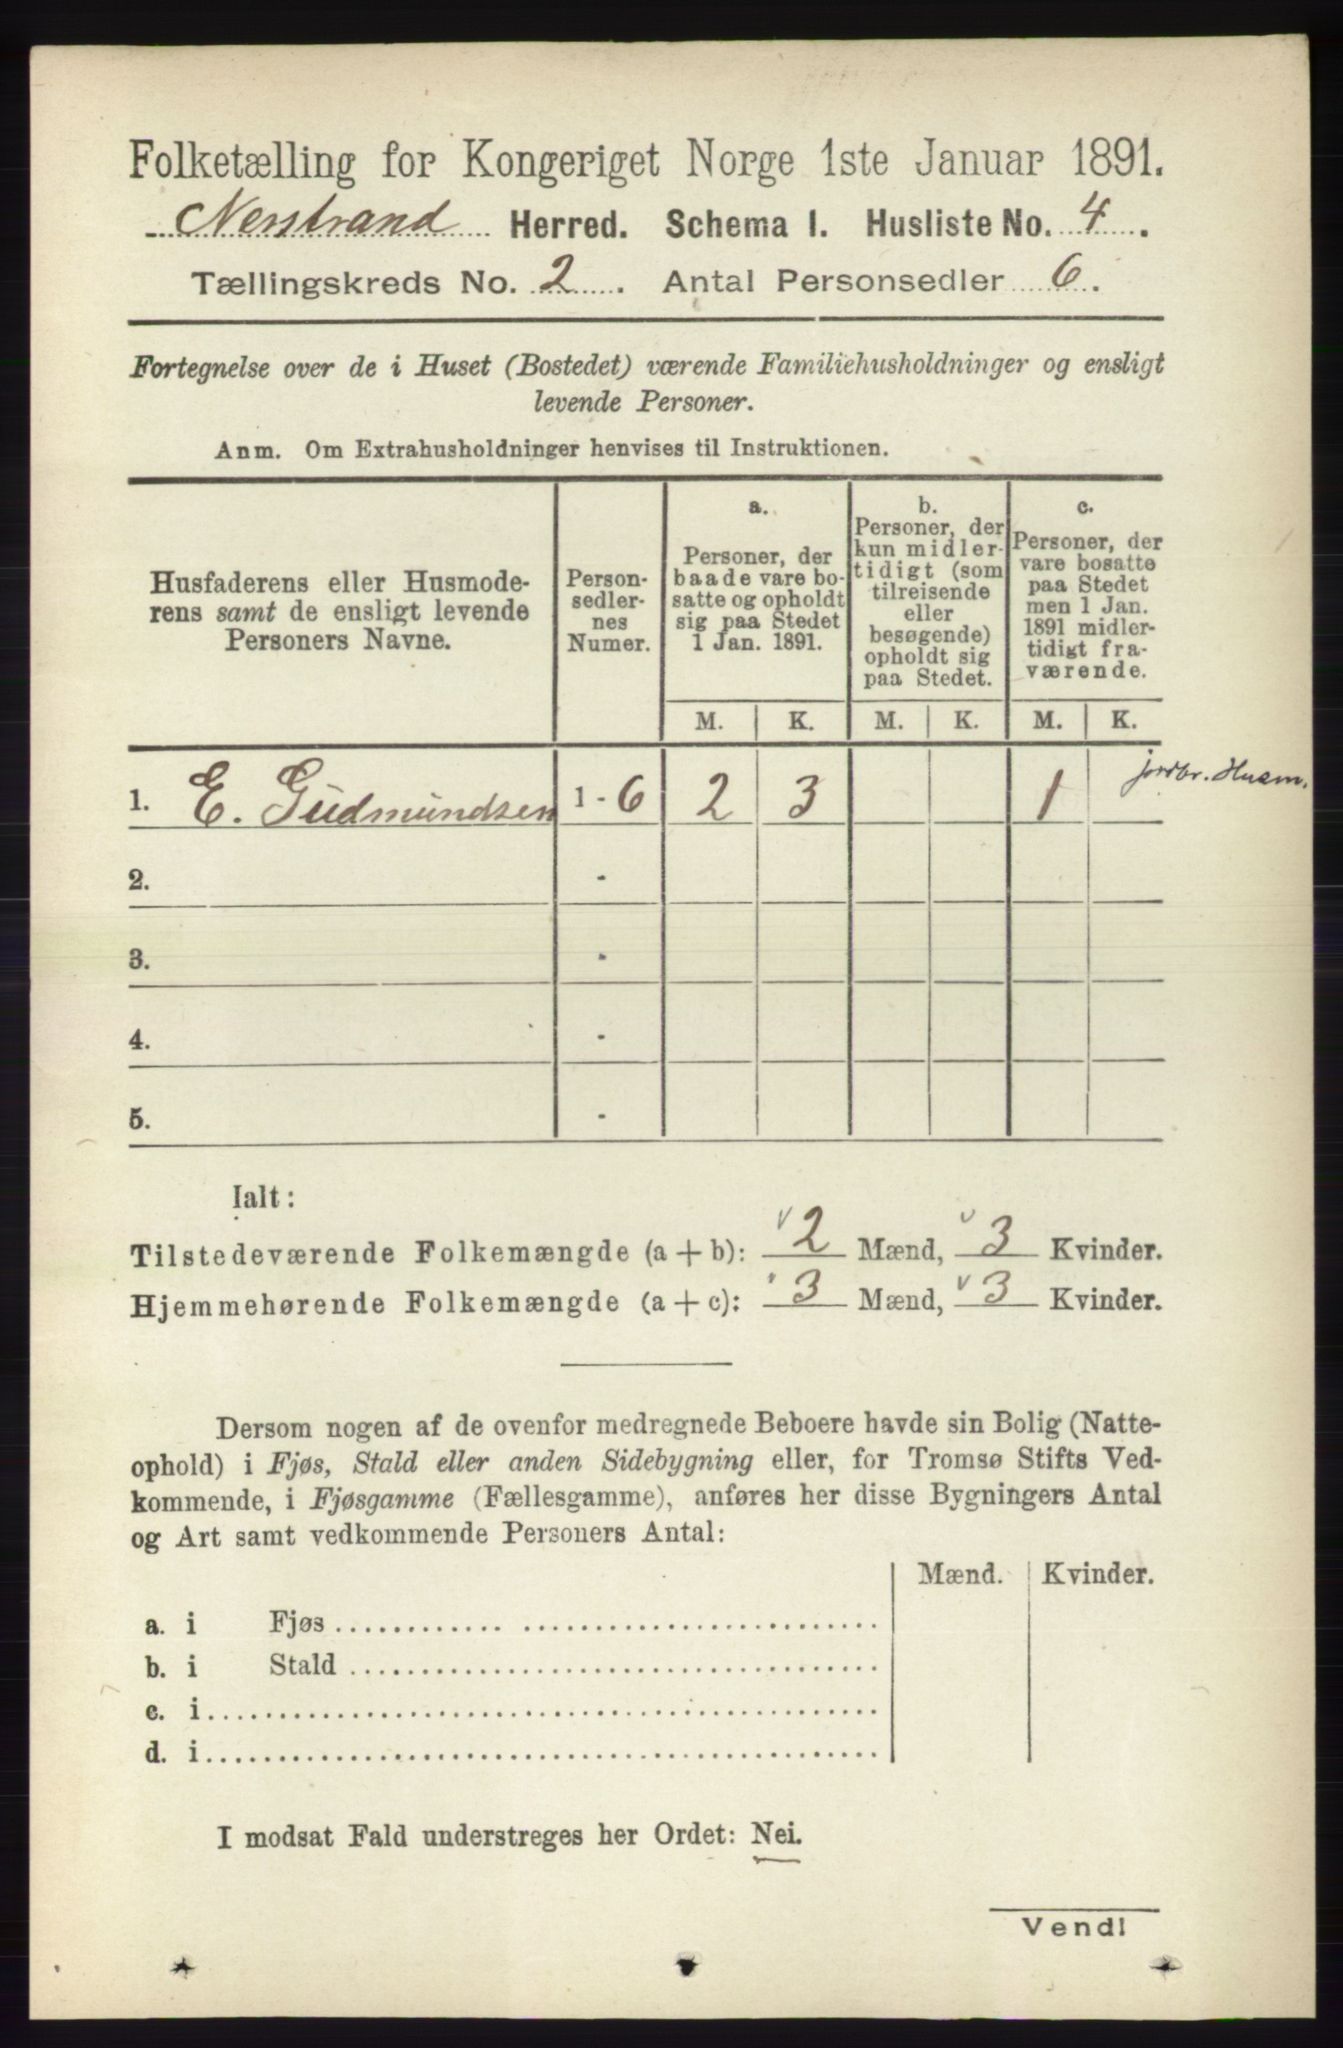 Folketælling for Kongeriget Norge 1ste Januar 1891.
Nerstrand Herred. Schema I. Husliste No. 4.
Tællingskreds No. 2. Antal Personsedler 6.
Fortegnelse over de i Huset (Bostedet) værende Familiehusholdninger og ensligt
levende Personer.
Anm. Om Extrahusholdninger henvises til Instruktionen.
Husfaderens eller Husmode-
rens samt de ensligt levende
Personers Navne.
Person-
sedler-
nes
Numer.
a.
Personer, der
baade vare bo-
satte og opholdt
sig paa Stedet
1 Jan. 1891.
b.
Personer, der
kun midler-
tidigt (som
tilreisende
eller
besøgende)
opholdt sig
paa Stedet.
c.
Personer, der
vare bosatte
paa Stedet
men 1 Jan.
1891 midler-
tidigt fra-
værende.
M. K. M. K. M. K.
1. E. Gudmundsen 1 - 6 2 3 1 jordbr. Husm.
2. -
3. -
4. -
5. -
Ialt:
Tilstedeværende Folkemængde (a + b): 2 Mænd, 3 Kvinder.
Hjemmehørende Folkemængde (a + c): 3 Mænd, 3 Kvinder.
Dersom nogen af de ovenfor medregnede Beboere havde sin Bolig (Natte-
ophold) i Fjøs, Stald eller anden Sidebygning eller, for Tromsø Stifts Ved-
kommende, i Fjøsgamme (Fællesgamme), anføres her disse Bygningers Antal
og Art samt vedkommende Personers Antal:
Mænd. Kvinder.
a. i Fjøs
b. i Stald
c. i
d. i
I modsat Fald understreges her Ordet: Nei.
Vend!